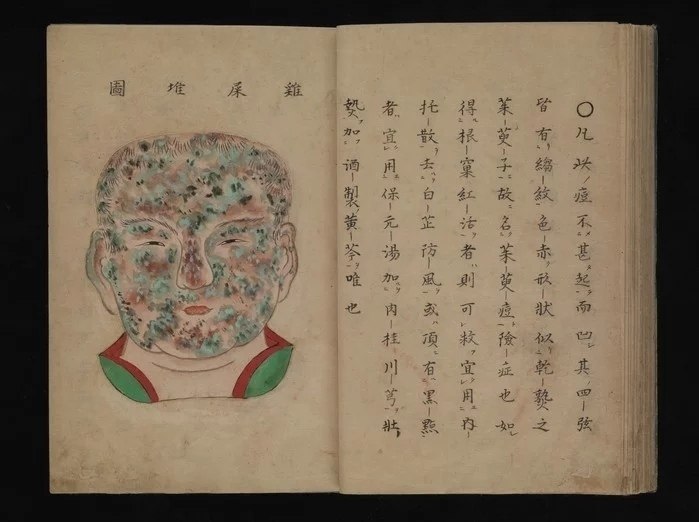 〇凡此痘不甚起而凹其四弦
皆有縐紋色赤形狀似乾熱之
茱萸子故名茱萸痘險症也如
得根窠紅活者則可救宜用内
托散去白芷防風或頂有黑點
者宜用保元湯加内桂川芎壯
熱加酒製黄芩唯也
雞屎堆圖